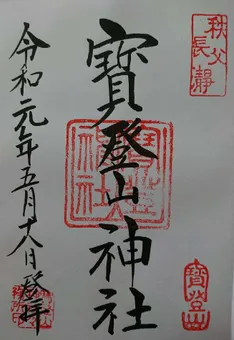 秩父
長瀞
寳登山神社
寳登山
令和元年五月十八日登拝